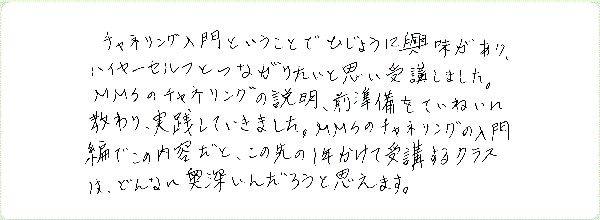 チャネリング入門ということでひじょうに興味があり、
ハイヤーセルフとつながりたいと思い受講しました。
MMSのチャネリングの説明、前準備をていねいに
教わり、実践していきました。MMSのチャネリングの入門
編でこの内容だと、この先の1年かけて受講するクラス
は、どんなに奥深いんだろうと思えます。